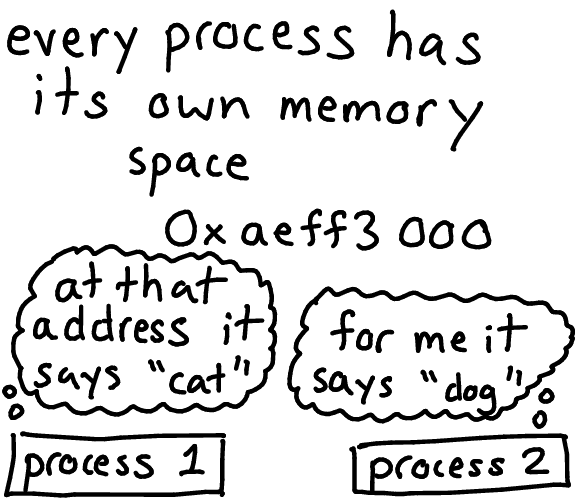 every process has
its own memory
space
0xaeff3000
at that
address it
says "cat"
for me it
says "dog"
process 1
process 2